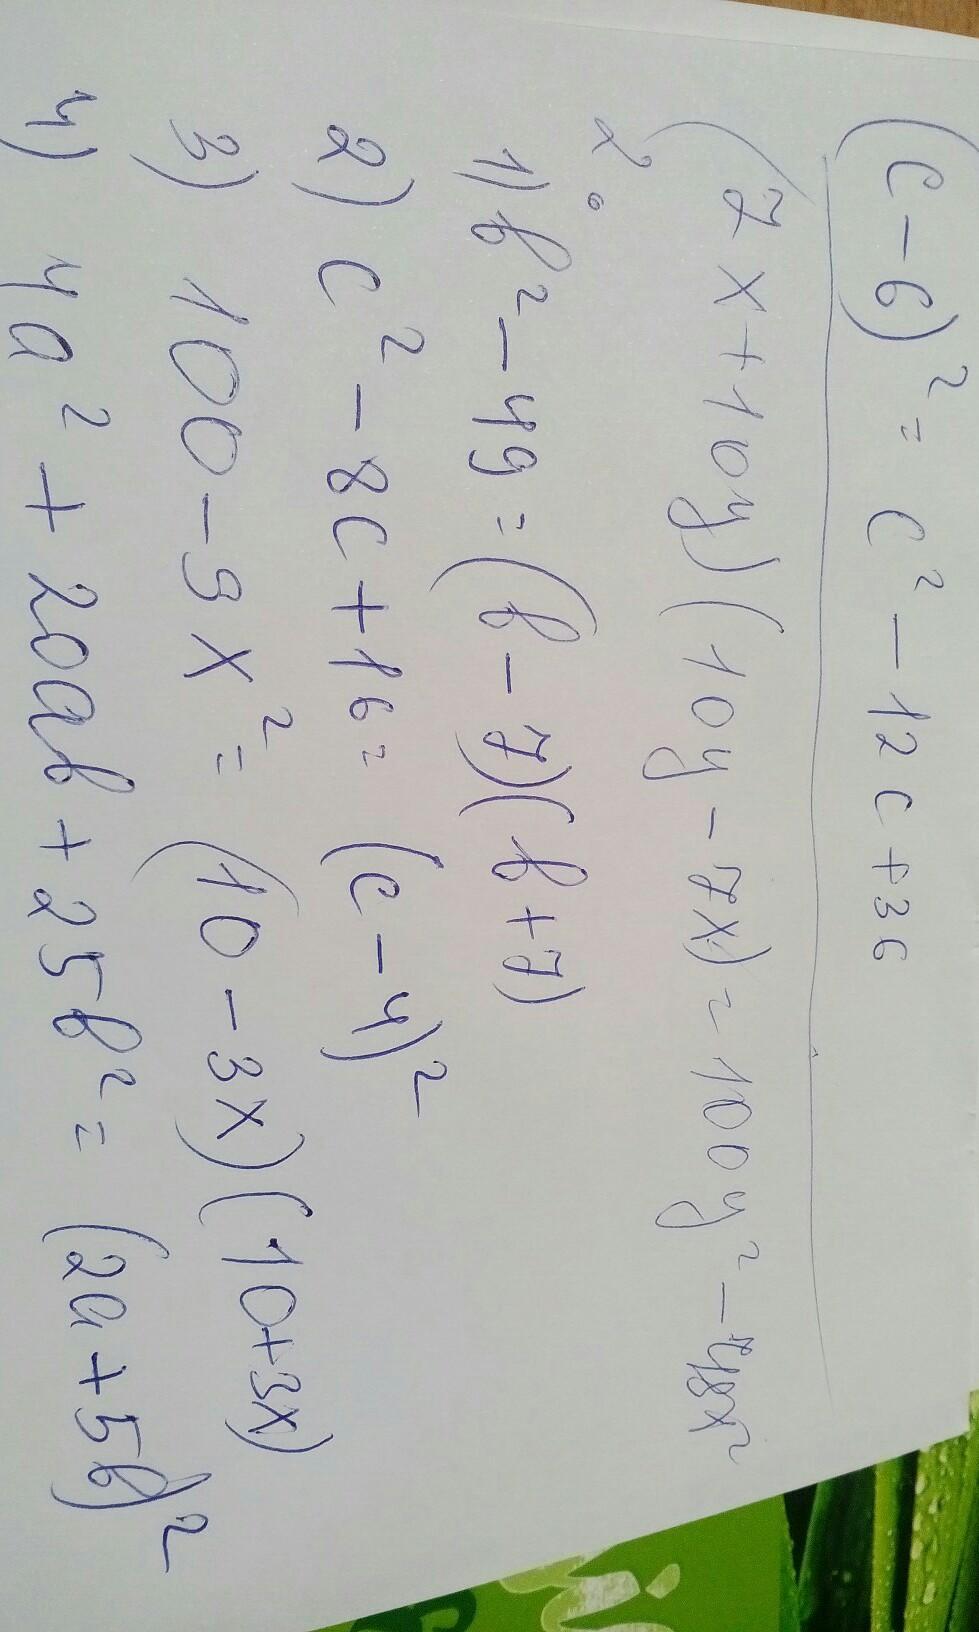 (c-6)² = c² - 12c + 36
(7x+10y)(10y-7x) = 100y² - 49x²
2.
1) b² - 49 = (b-7)(b+7)
2) c² - 8c + 16 = (c-4)²
3) 100 - 9x² = (10-3x)(10+3x)
4) 4a² + 20ab + 25b² = (2a+5b)²